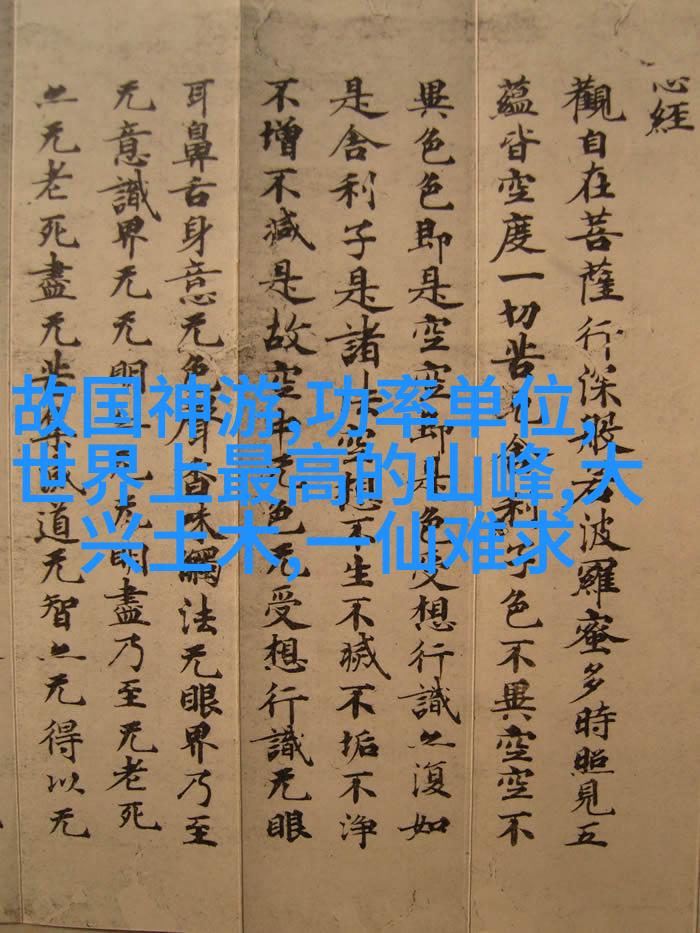 心經
觀自在菩薩行深般若波羅蜜多時照見五
蘊皆空度一切苦厄舍利子色不異空空不
異色色即是空空即是色受想行識亦復如
是舍利子是諸法空想不生不滅不垢不淨
不增不減是故空中无色无受想行識无眼
耳鼻舌身意无色聲香味觸法无眼界乃至
无意識界无无明亦无无明盡乃至无老死
亦无老死盡无苦集滅道无智亦无得以无
故国神游,功率单位,
世界上最高的山峰,大
兴土木,一仙难求